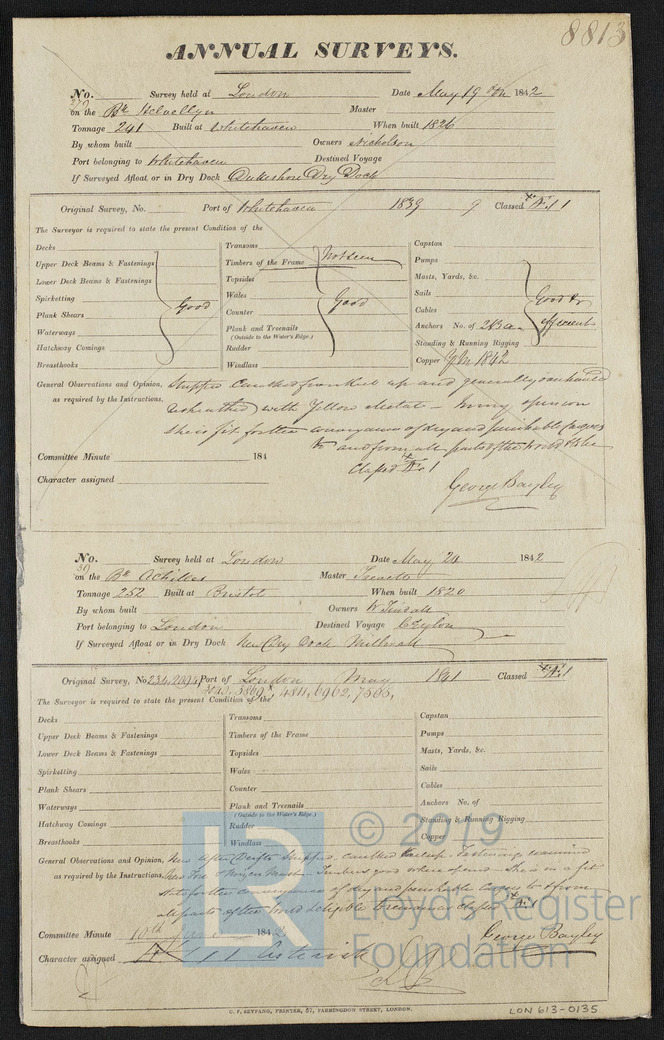 8813
ANNUAL SURVEYS.
No. 270 Survey held at London Date May 19 1842
on the Bk Helvellyn Master
Tonnage 241 Built at Whitehaven When built 1826
By whom built Owners Nicholson
Port belonging to Whitehaven Destined Voyage
If Surveyed Afloat or in Dry Dock Dukeshore Dry Dock
Original Survey, No. Port of Whitehaven 1839 9 Classed Æ 1
The Surveyor is required to state the present Condition of the
Decks
Upper Deck Beams & Fastenings
Lower Deck Beams & Fastenings
Spirketting
Plank Shears
Waterways
Hatchway Comings
Breasthooks
Good
Transoms
Timbers of the Frame Not seen
Topsides
Wales
Counter
Plank and Treenails
(Outside to the Water's Edge.)
Rudder
Windlass
Good
Capstan
Pumps
Masts, Yards, &c.
Sails
Cables
Anchors No. of
Standing & Running Rigging
Copper Y M 1842
Good &
efficient
General Observations and Opinion, Stripped Caulked from keel up and generally overhauled
as required by the Instructions, resheathed with Yellow Metal – In my opinion
she is fit for the conveyance of dry and perishable Cargoes
to and from all parts of the World & to be
Classed Æ 1
Committee Minute 184
Character assigned
George Bayley
No. 30 Survey held at London Date May 24 1842
on the Bk Achilles Master Trevett
Tonnage 252 Built at Bristol When built 1820
By whom built Owners W Tindall
Port belonging to London Destined Voyage Ceylon
If Surveyed Afloat or in Dry Dock New Dry Dock Millwall
Original Survey, No. 234, 2094 Port of London May 1841 Classed Æ 1
3869, 4811, 6962, 7565,
The Surveyor is required to state the present Condition of the
Decks
Upper Deck Beams & Fastenings
Lower Deck Beams & Fastenings
Spirketting
Plank Shears
Waterways
Hatchway Comings
Breasthooks
Transoms
Timbers of the Frame
Topsides
Wales
Counter
Plank and Treenails
(Outside to the Water's Edge.)
Rudder
Windlass
Capstan
Pumps
Masts, Yards, &c.
Sails
Cables
Anchors No. of
Standing & Running Rigging
Copper
General Observations and Opinion, New Stripped, caulked Fastenings examined
as required by the Instructions, New Fore & Mizen Masts Timbers good where seen She is in a fit
state for the conveyance of dry and perishable Cargo to & from
all parts of the World & eligible to remain classed Æ 1
Committee Minute 10th June 1842
George Bayley
Character assigned Æ 1 Asterisk
© 2019
Lloyd's Register
Foundation
C. F. SEYFANG, PRINTER, 57, FARRINGDON STREET, LONDON.
LON 613-0135